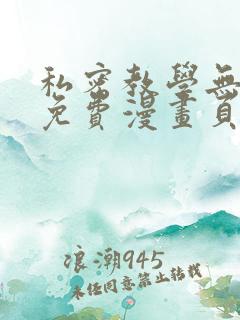 私密教學無
免費漫畫頁
浪潮945
未经同意禁止转载